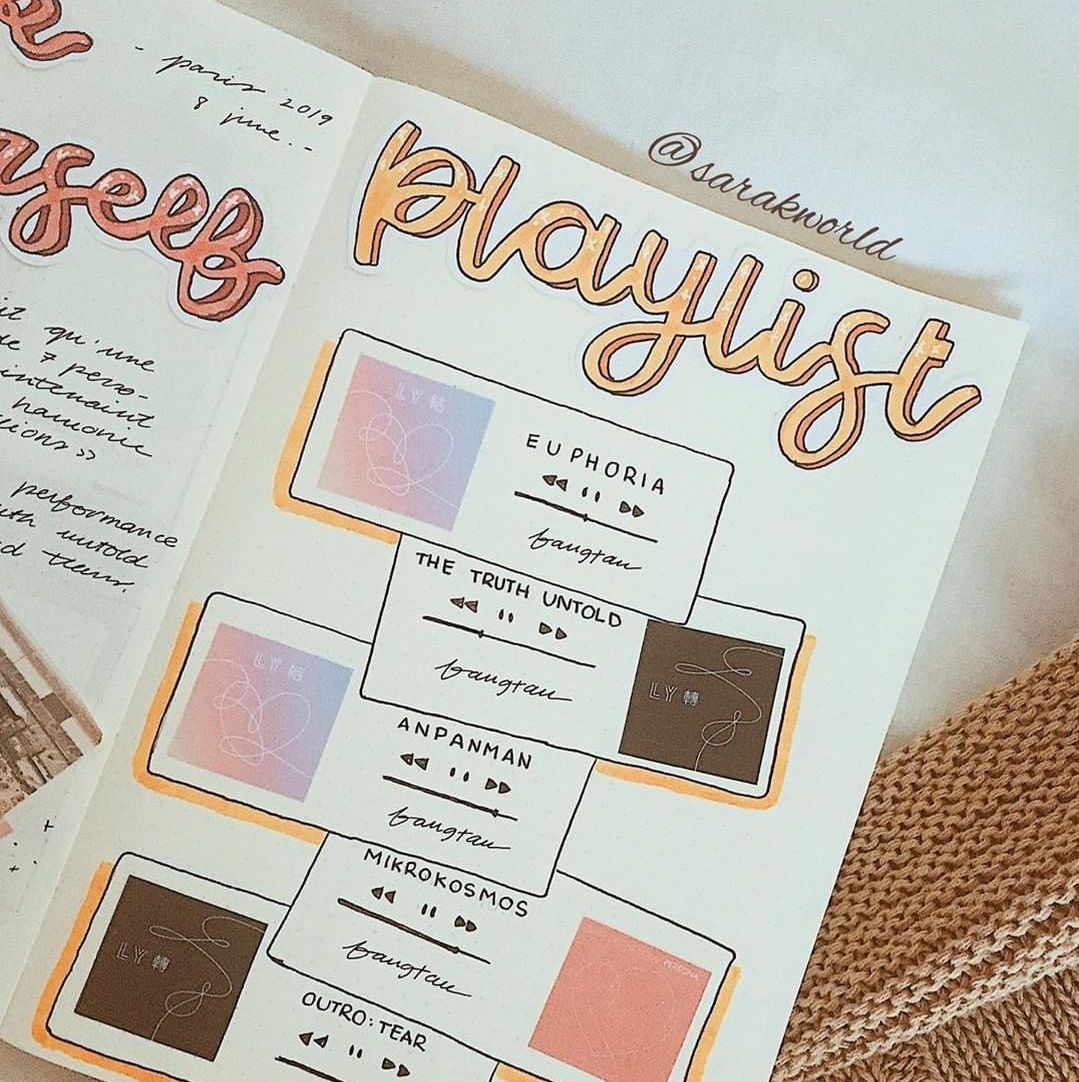 - paris 2019
8 june. -
self
it qu'une
de 7 perso-
intenaint
harmonie
sions >>
performance
uth untold
d tears.
@sarakworld
playlist
LY 結
EUPHORIA
bangtan
THE TRUTH UNTOLD
bangtan
LY 轉
LY 結
ANPANMAN
bangtan
MIKROKOSMOS
bangtan
PERSONA
LY 轉
OUTRO: TEAR